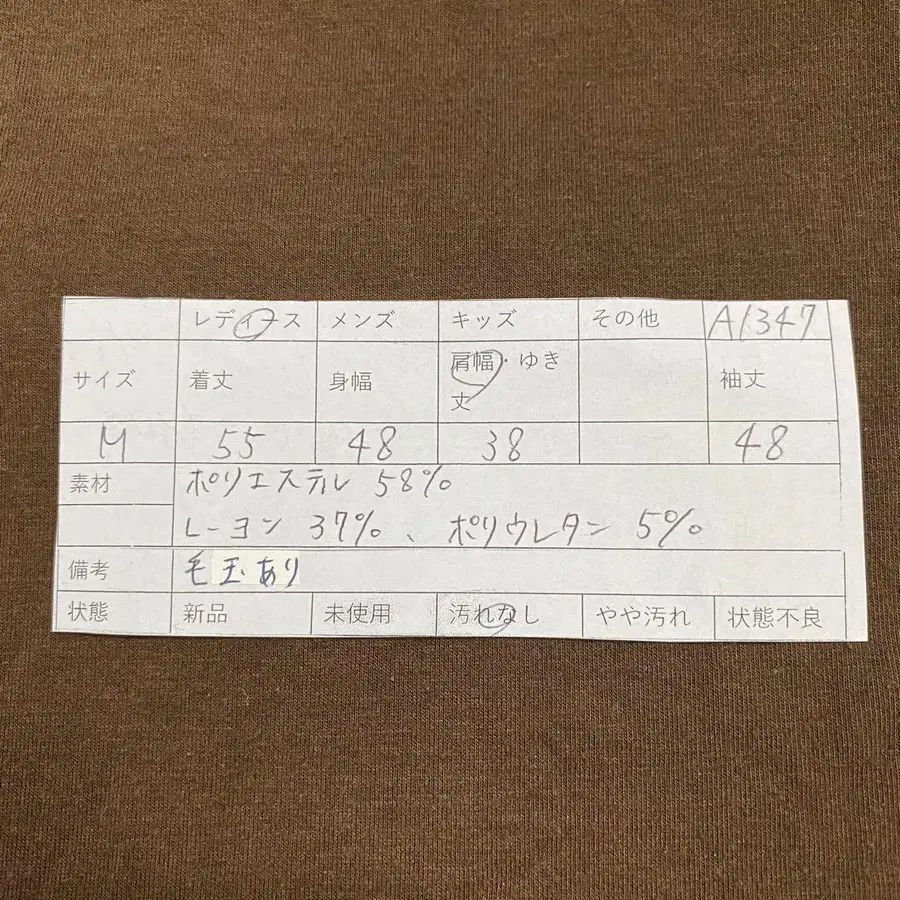 レディース メンズ キッズ その他 A1347
サイズ 着丈 身幅 肩幅・ゆき丈 袖丈
M 55 48 38 48
素材 ポリエステル 58%
レーヨン 37%、ポリウレタン 5%
備考 毛玉あり
状態 新品 未使用 汚れなし やや汚れ 状態不良